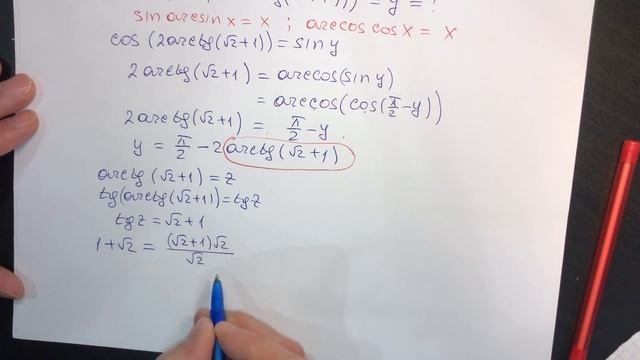 = y = ?
sin arcsin x = x ; arccos cos x = x
cos (2arctg(√2+1)) = sin y
2arctg(√2+1) = arccos(sin y)
= arccos(cos(π/2-y))
2arctg(√2+1) = π/2 - y
y = π/2 - 2 arctg(√2+1)
arctg (√2+1) = z
tg(arctg(√2+1)) = tg z
tg z = √2+1
1+√2 = (√2+1)√2/√2